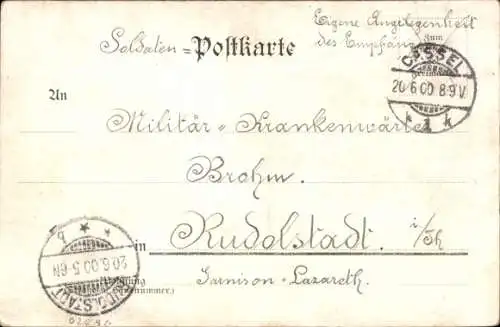 Eigene Angelegenheit
des Empfäng
Soldaten = Postkarte
Zum
CASSEL
20 6.00. 8-9 V.
* 1 k
An
Militär-Krankenwärter
Brohm.
in Rudolstadt. i/Th
Garnison-Lazareth.
RUDOLSTADT
20.6.00. 5-6 N
* * b